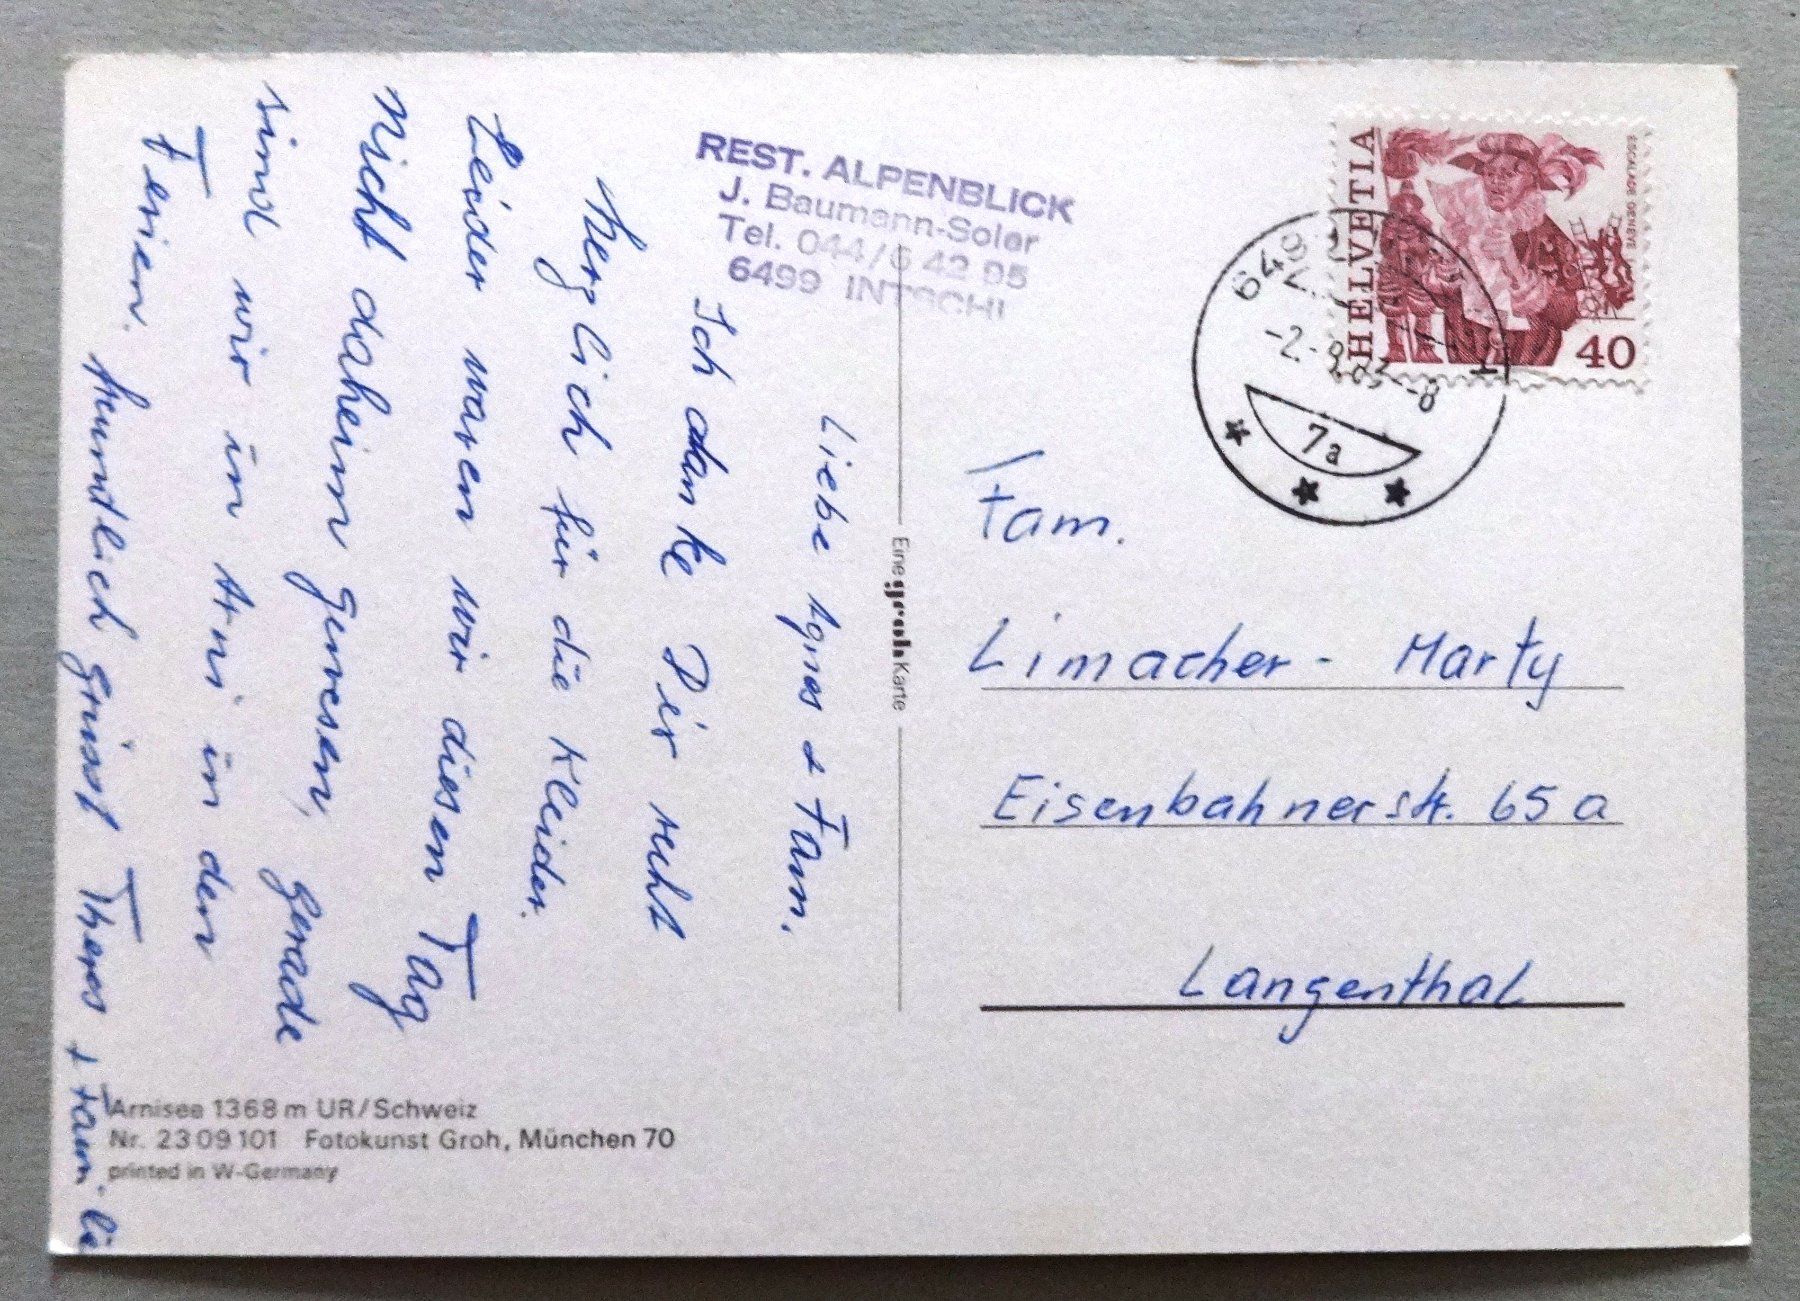 REST. ALPENBLICK
J. Baumann-Soler
Tel. 044/6 42 95
6499 INTSCHI
HELVETIA
ESCALADE GENÈVE
40
649
-2.-8.83-8
7a
Liebe Agnes + Fam.
Ich danke Dir recht
herzlich für die Kleider.
Leider waren wir diesen Tag
nicht daheim gewesen, gerade
sind wir in Arni in den
Ferien. Freundlich grüsst Theres + Fam.
Eine groh Karte
Fam.
Limacher - Marty
Eisenbahnerstr. 65a
Langenthal
Arnisee 1368 m UR/Schweiz
Nr. 2309101 Fotokunst Groh, München 70
printed in W-Germany